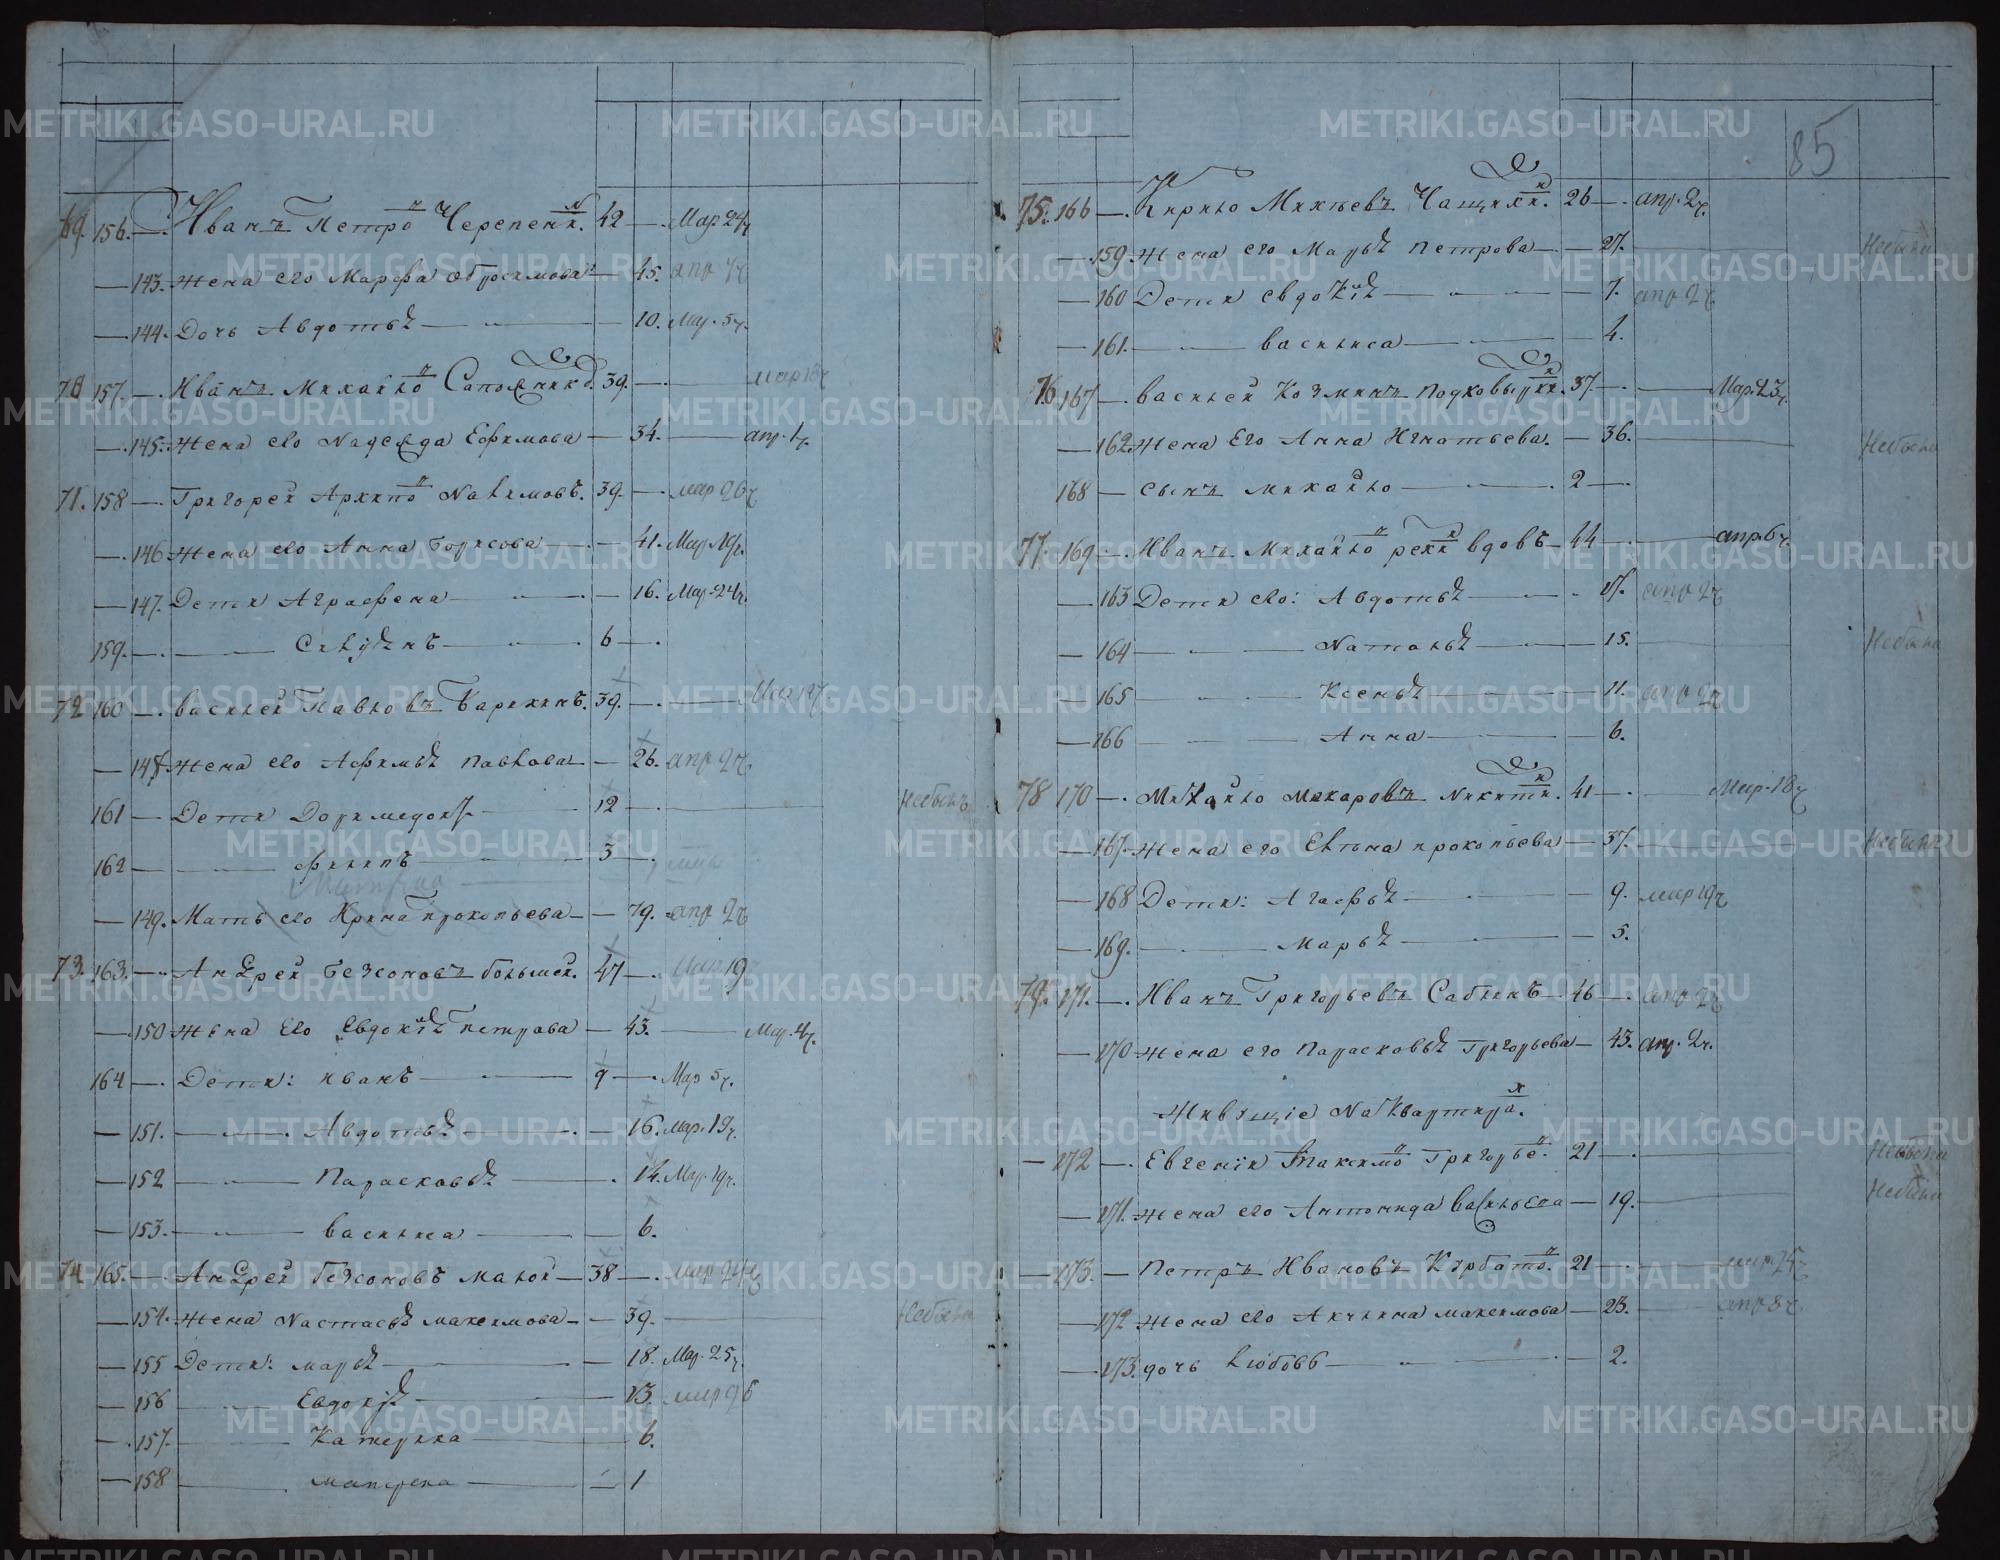 85
69. 156. Иванъ Петро Черепени. 42 Мар. 24ч
143. жена его Марфа Обросимова 45. апр 1ч
144. Дочь Авдотьѣ 10. Мар. 5ч.
70 157. Иванъ Михайло 39. мар 16ч
145. жена его Nадежда Ефимова 34. апр. 1ч.
71. 158 Григорей Архипо Nакимовъ. 39. мар 26ч
146 жена его Анна Борисова 41. Мар. 19ч.
147. Дети Аграфена 16. Мар. 24ч.
159. 6
72 160 василей Павловъ Барихинъ. 39.
148. жена его Афимьѣ павлова 26. апр 2ч.
161 Дети Доримедонт 12 Небылъ
162 филипъ 3
149. Мать его Ирина прокопьева 79. апр 2ч
73. 163. Андрей Безсоновъ большей. 47 мар 19
150 жена Его Евдокіѣ петрова 43. Мар. 4ч.
164 Дети: иванъ 9 Мар 5ч.
151. Авдотьѣ 16. Мар. 19ч.
152 Парасковьѣ 14. Мар. 19ч.
153. василиса 6.
74 165. Андрей Безсоновъ малой 38 мар 24ч
154. жена Nастасьѣ максимова 39. Небыла
155 Дети: марьѣ 18. Мар. 25ч.
156 Евдокіѣ 13. мар 26
157. Катерина 6.
158 матрена 1
75. 166 Кирило Михеевъ Чащихи. 26 апр. 2ч.
159 жена его Марьѣ петрова 27. Небыла
160 Дети евдокіѣ 7. апр 2ч
161. василиса 4.
76 167 василей Козминъ подковырки. 37. Мар. 23ч.
162 жена Его Анна Игнатьева. 36. Небыла
168 сынъ михайло 2
77. 169 Иванъ Михайло вдовъ 44 апр. 6ч.
163 Дети его: Авдотьѣ 17. апр 2ч
164 Nатальѣ 15. Небыла
165 Ксеньѣ 11. апр 2ч
166 Анна 6.
78 170 Михайло макаровъ Nикити. 41 Мар. 18ч
167. жена его Елена прокопьева 37. Небыла
168 Дети: Агафьѣ 9. мар 19ч
169. Марьѣ 5.
79. 171. Иванъ Григорьевъ Сабинъ 46 апр 2ч
170 жена его парасковьѣ Григорьева 43. апр. 2ч.
Живущіе Nа Квартира.
172 Евгеніи Максимо Григорье. 21 Небылъ
171. жена его Антонида васильева 19. Небыла
173. Петръ Ивановъ Курбато. 21 мар 25ч
172 жена его Акулина максимова 23. апр 8ч.
173. дочь Любовь 2.
METRIKI.GASO-URAL.RU